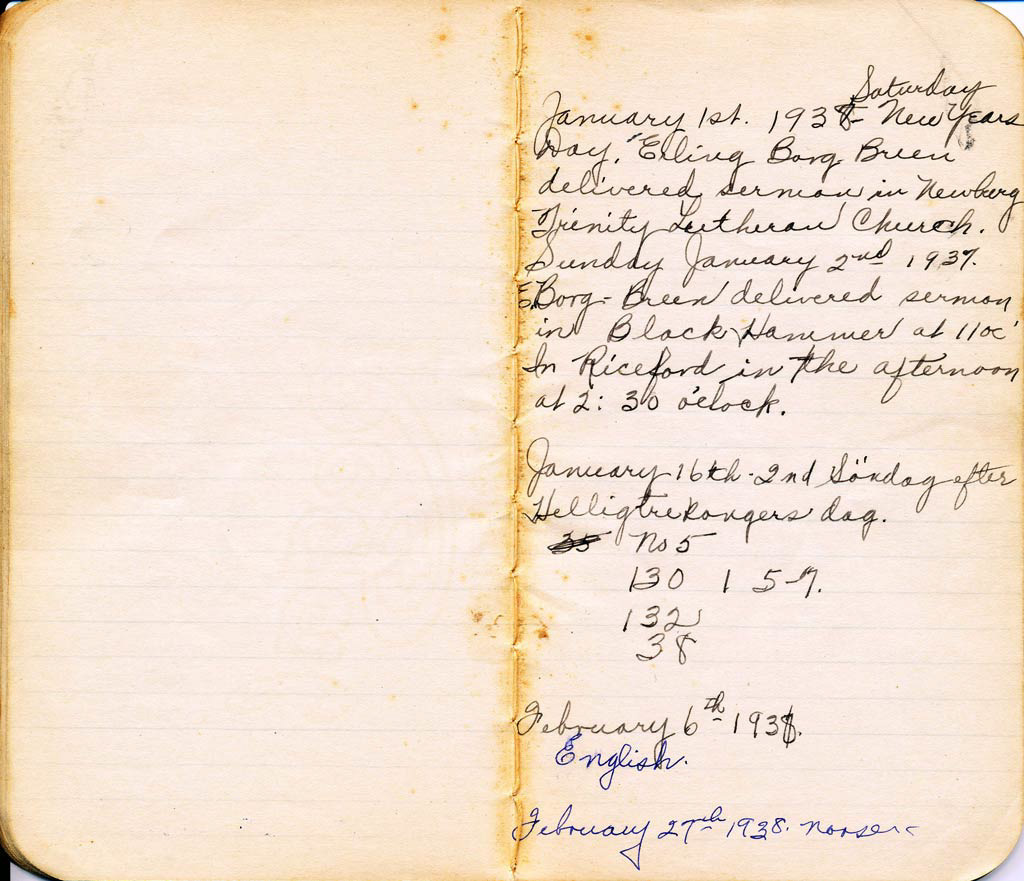 Saturday
January 1st. 1938 - New Years
Day, Erling Borg-Breen
delivered sermon in Newburg
Trinity Lutheran Church.
Sunday January 2nd 1937.
E. Borg-Breen delivered sermon
in Black Hammer at 11oc'
In Riceford in the afternoon
at 2:30 o'clock.
January 16th - 2nd Söndag efter
Helligtrekongers dag.
35 No 5
130 1 5-7.
132
38
February 6th 1938.
English.
February 27th 1938. Norse